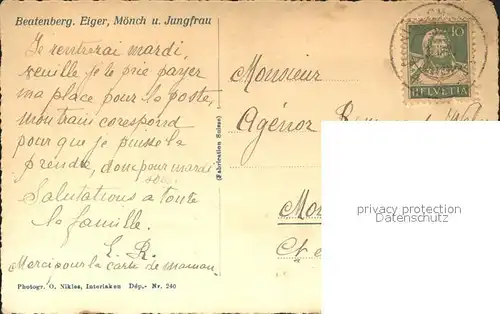 Beatenberg. Eiger, Mönch u. Jungfrau
Je rentrerai mardi
veuille je te prie payer
ma place pour la poste,
mon train corespond
pour que je puisse la
prendre, donc pour mardi
soir.
Salutations a toute
la famille.
E. R.
Merci pour la carte de maman.
Photogr. O. Nikles, Interlaken Dép.- Nr. 240
(Fabrication Suisse)
10
HELVETIA
Monsieur
Agénor
privacy protection
Datenschutz